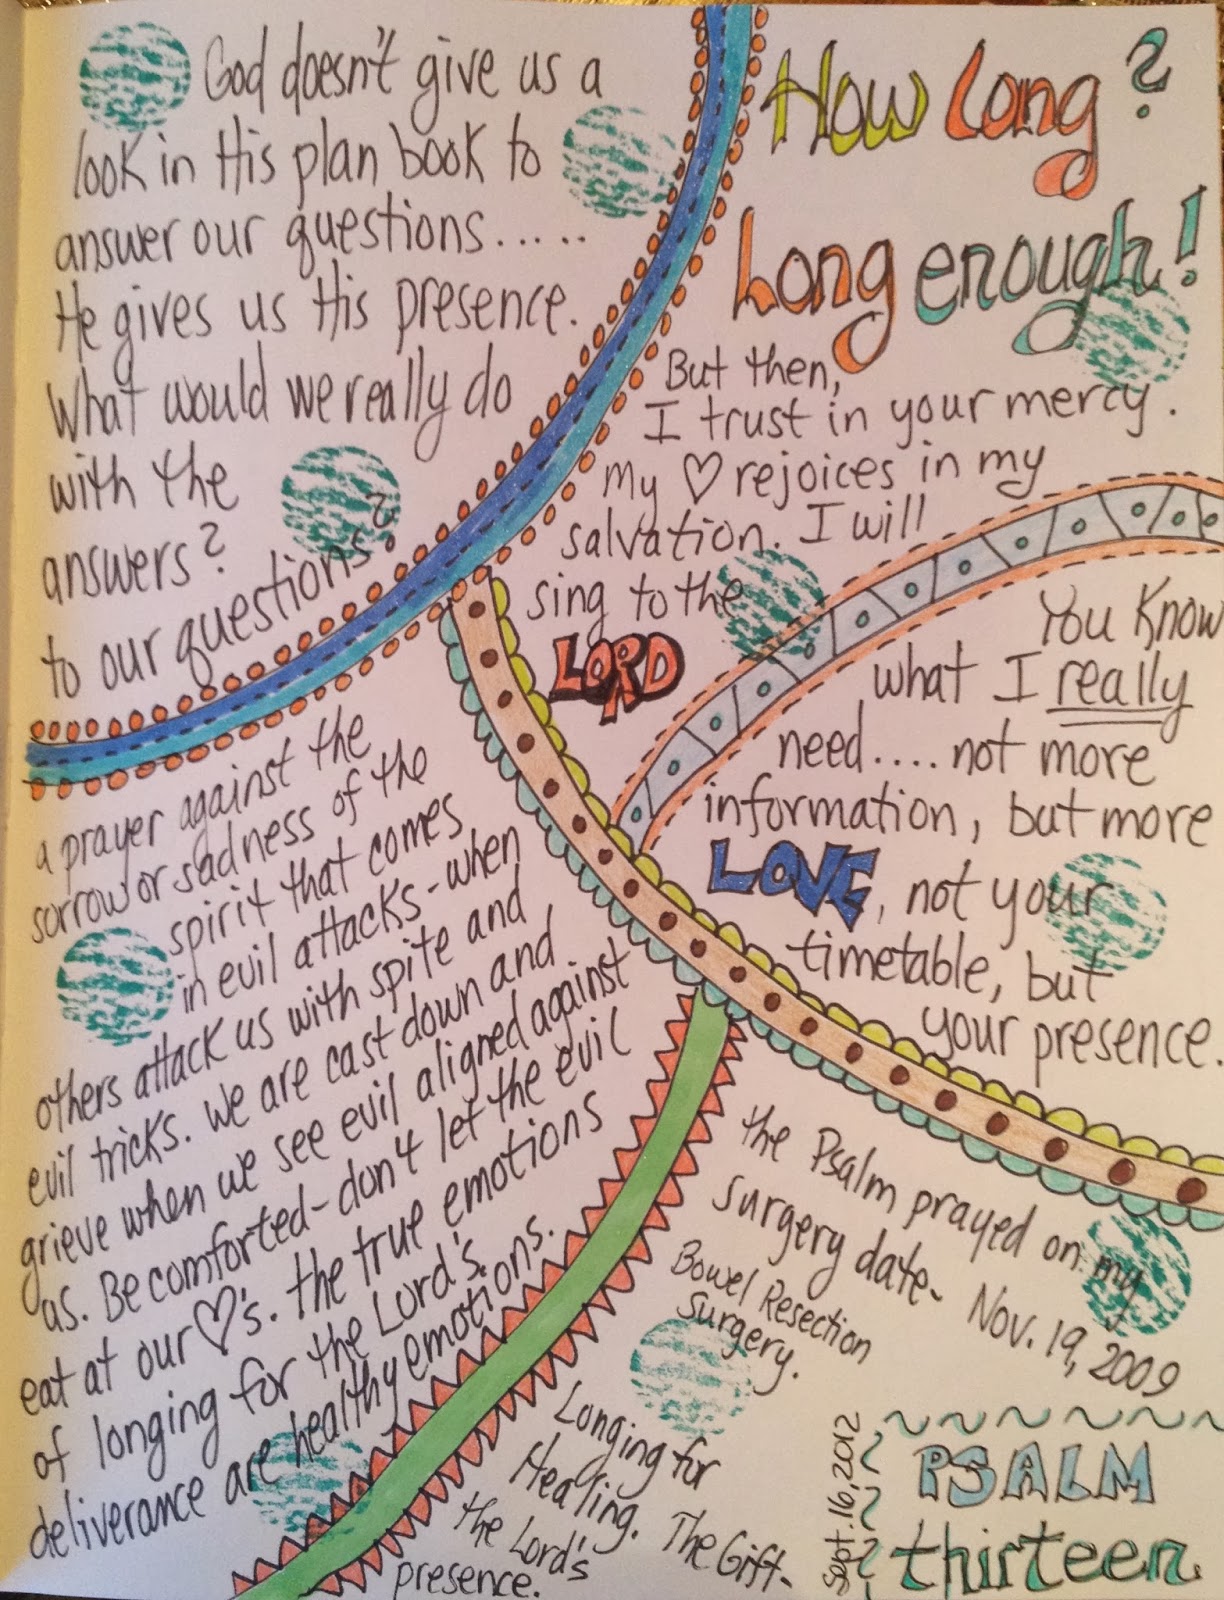 God doesn't give us a
look in His plan book to
answer our questions.....
He gives us His presence.
What would we really do
with the
answers?
to our questions?
How Long?
Long enough!
But then,
I trust in your mercy.
my ♡ rejoices in my
salvation. I will
sing to the
LORD
You Know
what I really
need.... not more
information, but more
LOVE, not your
timetable, but
your presence.
a prayer against the
sorrow or sadness of the
spirit that comes
in evil attacks - when
others attack us with spite and
evil tricks. We are cast down and
grieve when we see evil aligned against
us. Be comforted - don't let the evil
eat at our ♡'s. the true emotions
of longing for the Lord's
deliverance are healthy emotions.
the Psalm prayed on my
surgery date - Nov. 19, 2009
Bowel Resection
surgery.
Longing for
Healing. The Gift -
the Lord's
presence.
Sept. 16, 2012
PSALM
thirteen